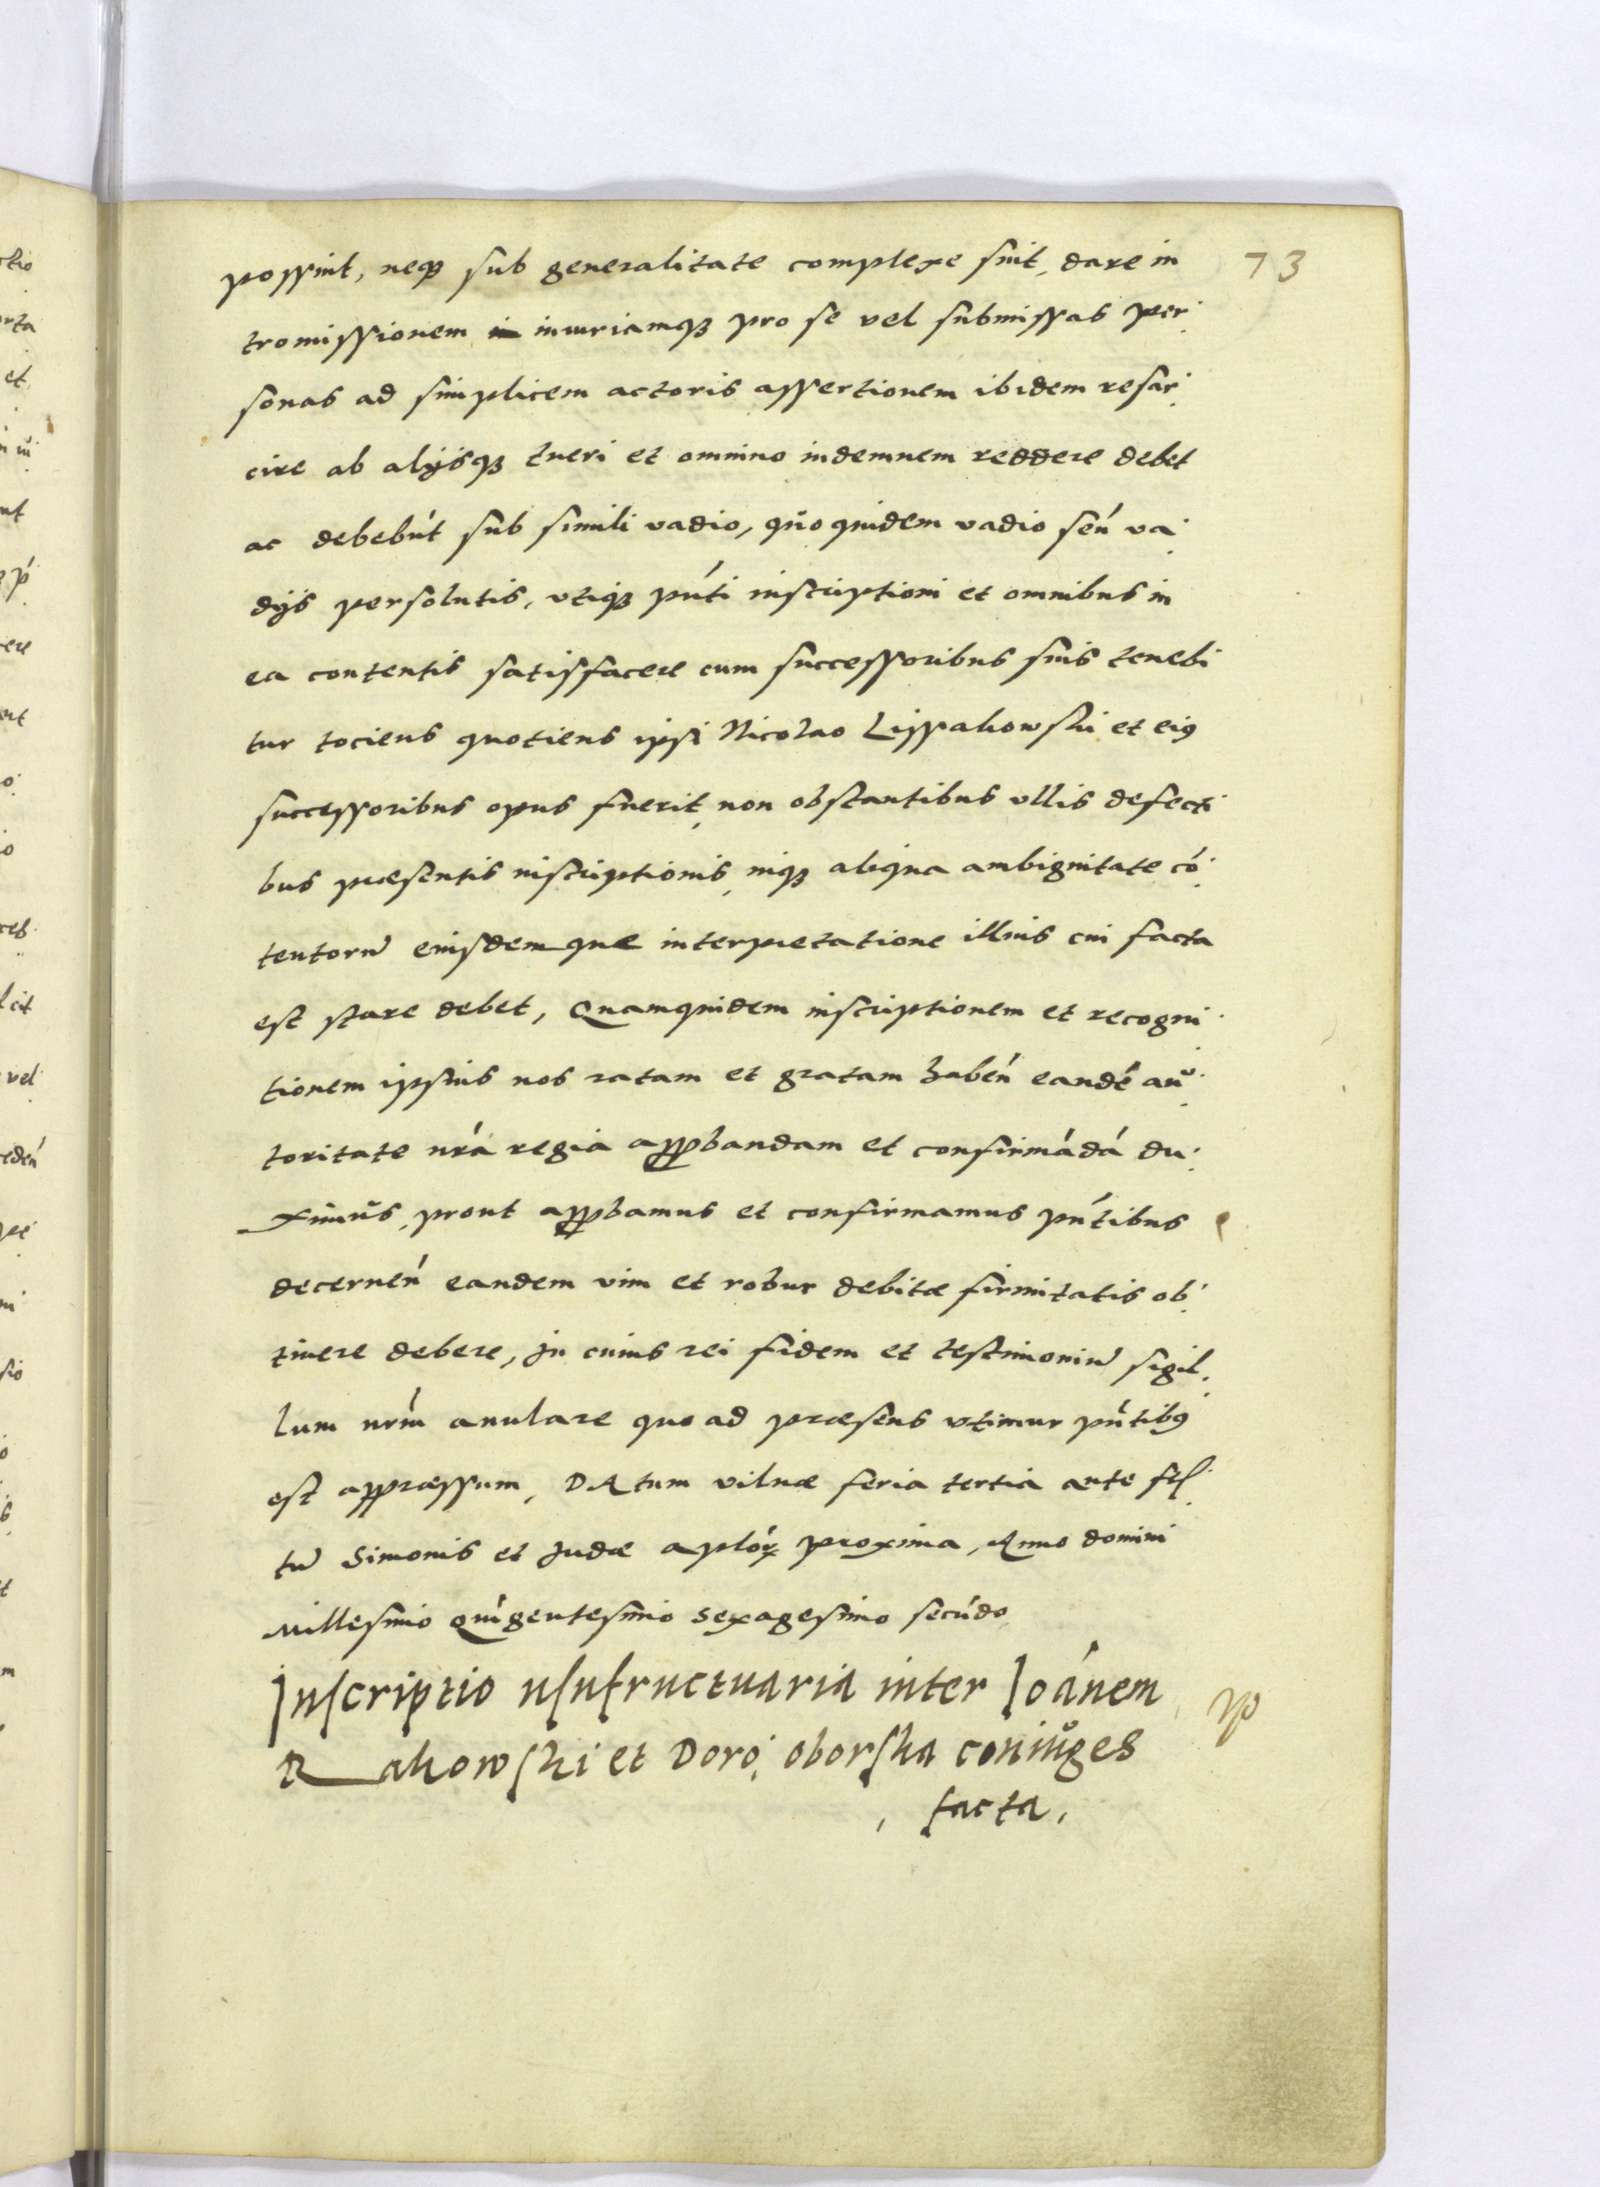 possint, neq3 sub generalitate complexe sint, dare in 73
tromissionem iniuriamq3 pro se vel submissas per
sonas ad simplicem actoris assertionem ibidem resar
cire ab alijsq3 tueri et omnino indemnem reddere debet
ac debebút sub simili vadio, quo quidem vadio seú va
dijs persolutis, vtiq3 pńti inscriptioni et omnibus in
ea contentis satisfacere cum successoribus suis tenebi
tur tociens quotiens ipsi Nicolao Lissakowski et ei9
successoribus opus fuerit, non obstantibus vllis defecti
bus præsentis inscriptionis, inq3 aliqua ambiguitate có
tentorũ eiusdemquæ interpretatione illius cui facta
est stare debet, Quamquidem inscriptionem et recogni
tionem ipsius nos ratam et gratam habeń eandé au
toritate nrá regia approbandam et confirmádá du
ximus, prout approbamus et confirmamus pńtibus
decerneń eandem vim et robur debitæ firmitatis ob
tinere debere, In cuius rei fidem et testimoniũ sigil
lum nrm̃ anulare quo ad præsens vtimur pńtib9
est appræssum, DAtum vilnæ feria tertia ante fes
tũ Simonis et Judæ aplóꝝ proxima, Anno domini
Millesimo Quígentesimo sexagesimo secúdo
Inscriptio usufructuaria inter Ioánem
Rakowski et Doro: oborska coniŭges
facta,